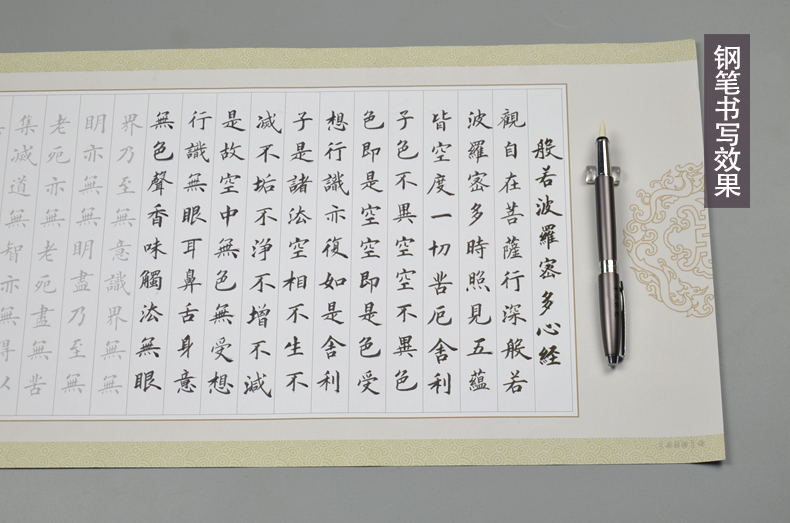 钢笔书写效果
般若波羅密多心經
觀自在菩薩行深般若
波羅密多時照見五蘊
皆空度一切苦厄舍利
子色不異空空不異色
色即是空空即是色受
想行識亦復如是舍利
子是諸法空相不生不
滅不垢不淨不增不減
是故空中無色無受想
行識無眼耳鼻舌身意
無色聲香味觸法無眼
界乃至無意識界無無
明亦無無明盡乃至無
老死亦無老死盡無苦
集滅道無智亦無得以